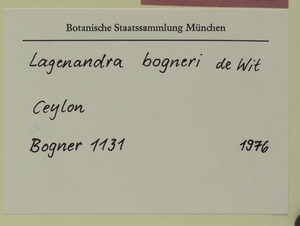 Botanische Staatssammlung München
Lagenandra bogneri de Wit
Ceylon
Bogner 1131 1976